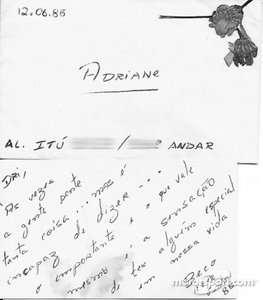 12.06.86
ADRIANE
AL. ITÚ / ANDAR
DRI,
Às vezes
a gente sente
tanta coisa... mas é
incapaz de dizer...
o importante e o que vale
mesmo é a sensação
de ter alguém especial
em nossa vida
Beco
86